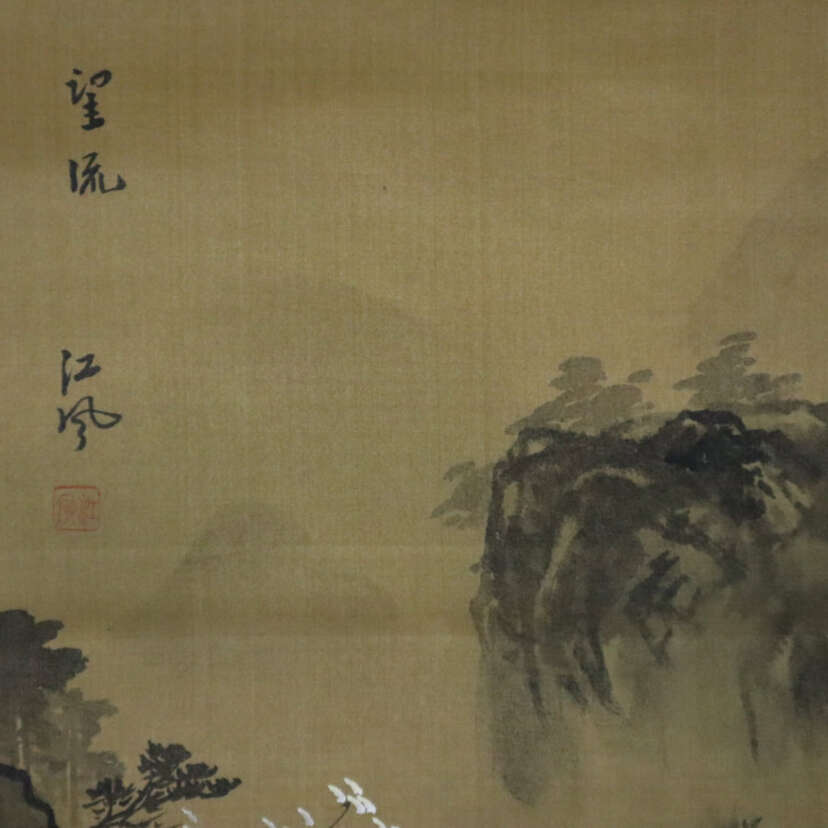 望流
江風